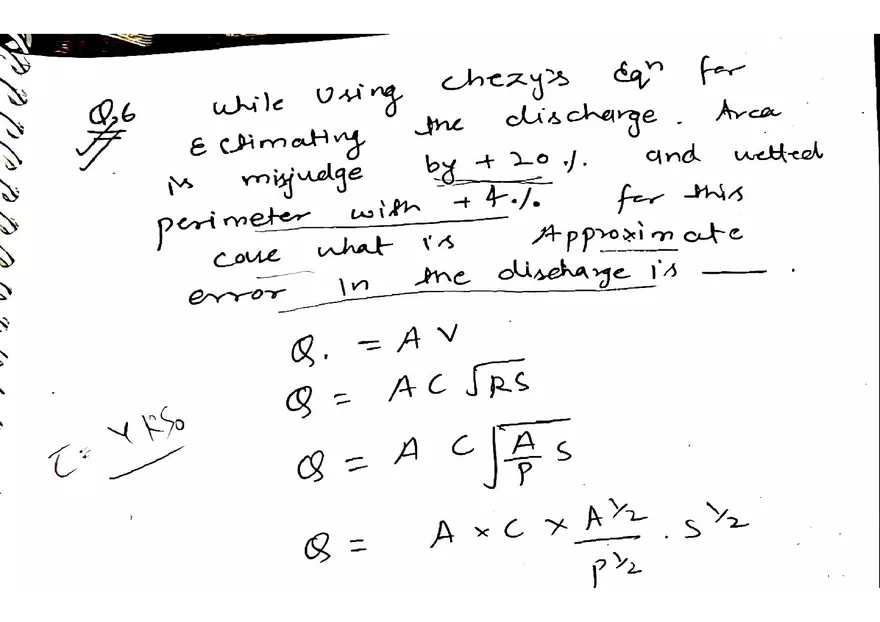 Q.6 while using chezy's Eqn for
Estimating the discharge. Area
is misjudge by + 20 %. and wetted
perimeter with + 4 %. for this
case what is Approximate
error in the discharge is ___ .
Q. = A V
Q = A C √RS
τ = γ R S₀
Q = A C √(A/P S)
Q = A × C × A^1/2 / P^1/2 . S^1/2